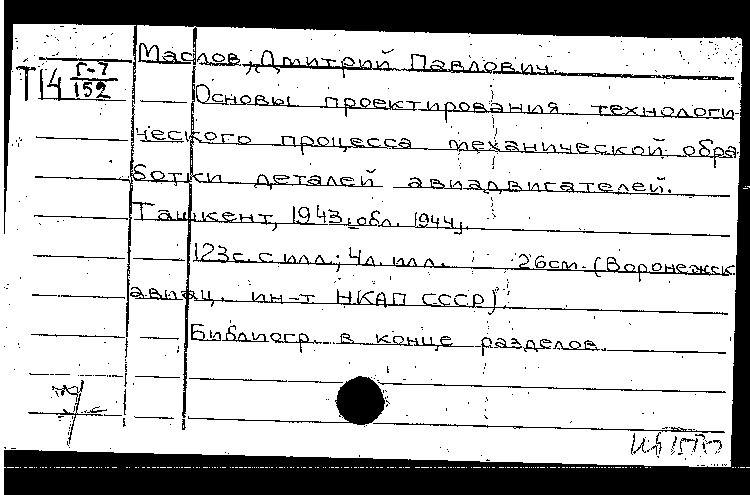 Маслов, Дмитрий Павлович.
Т14 Г-7/152
Основы проектирования технологи
ческого процесса механической обра
ботки деталей авиадвигателей.
Ташкент, 1943, обл. 1944.
123с. с илл.; 4л. илл. 26см. (Воронежск
авиац. ин-т НКАП СССР)
Библиогр. в конце разделов.